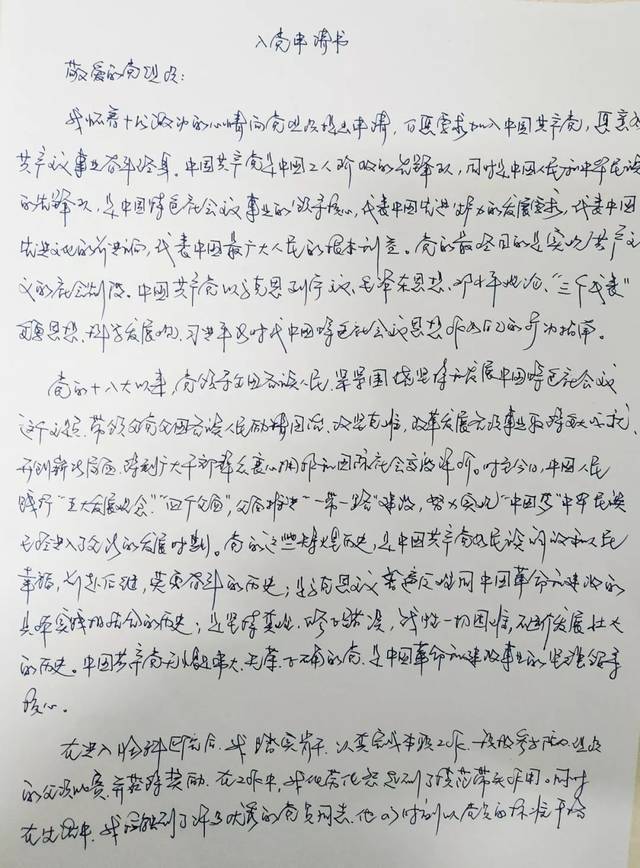 入党申请书
敬爱的党组织：
我怀着十分激动的心情向党组织提出申请，自愿要求加入中国共产党，愿意为
共产主义事业奋斗终身。中国共产党是中国工人阶级的先锋队，同时是中国人民和中华民族
的先锋队，是中国特色社会主义事业的领导核心，代表中国先进生产力的发展要求，代表中国
先进文化的前进方向，代表中国最广大人民的根本利益。党的最终目的是实现共产主
义的社会制度。中国共产党以马克思列宁主义、毛泽东思想、邓小平理论、“三个代表”
重要思想、科学发展观、习近平新时代中国特色社会主义思想作为自己的行动指南。
党的十八大以来，党领导全国各族人民，紧紧围绕坚持和发展中国特色社会主义
这个主题，带领全党全国各族人民励精图治、攻坚克难，改革发展各项事业取得重大成就，
开创新的局面，得到广大干部群众衷心拥护和国际社会高度评价。时至今日，中国人民
践行“五大发展理念”“四个全面”，全面推进“一带一路”建设，努力实现“中国梦”中华民族
已经进入了全新的发展时期。党的这些辉煌历史，是中国共产党为民族解放和人民
幸福，前赴后继，英勇奋斗的历史；是马克思主义普遍真理同中国革命和建设的
具体实践相结合的历史；是坚持真理，修正错误，战胜一切困难，不断发展壮大
的历史。中国共产党无愧是伟大、光荣、正确的党，是中国革命和建设事业的坚强领导
核心。
在进入医院后，我踏实肯干，以真实本领工作，积极参加组织
的比赛，并获得奖励。在工作中，我起到了模范带头作用。同时
在生活中，我接触到了许多优秀的党员同志，他们时刻以党员的标准严格